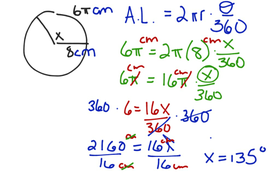 6π cm
x
8cm
A.L. = 2πr · θ/360
6π cm = 2π(8) cm · x/360
6π cm = 16π cm (x/360)
360 · 6 = 16x/360 · 360
2160 cm/16 cm = 16x cm/16 cm
x = 135°